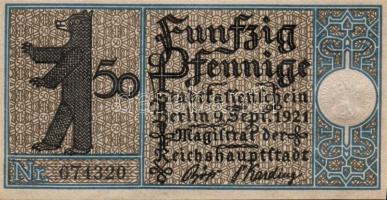 Funfzig
50 Pfennige
Stadtkassenschein
Berlin 9. Sept. 1921
Magistrat der
Reichshauptstadt
Nr. 074320